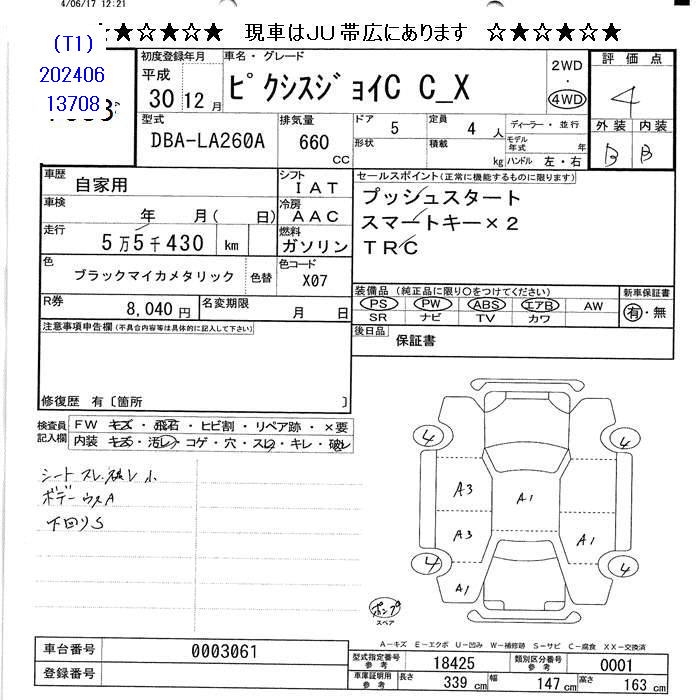 4/06/17 12:21
★☆★☆★☆★ 現車はJU帯広にあります ☆★☆★☆★
(T1)
202406
13708
初度登録年月
平成
30 12 月
車名・グレード
ピクシスジョイC C_X
2WD
・
4WD
評価点
4
型式
DBA-LA260A
排気量
660
CC
ドア 5
定員 4 人
形状
積載 kg
ディーラー・並行
モデル年式 年
ハンドル 左・右
外装 内装
B B
車歴
自家用
シフト
IAT
車検
年 月( 日)
冷房
AAC
走行
5万5千430 km
燃料
ガソリン
セールスポイント(正常に機能するものに限ります)
プッシュスタート
スマートキー×2
TRC
色
ブラックマイカメタリック
色替
色コード
X07
R券
8,040 円
名変期限
月 日
装備品(純正品に限り○をつけてください)
PS PW ABS エアB AW
SR ナビ TV カワ
新車保証書
有・無
後日品
保証書
注意事項申告欄(不具合内容等は具体的に記入して下さい)
修復歴 有〔箇所 〕
検査員記入欄
FW キズ・飛石・ヒビ割・リペア跡・×要
内装 キズ・汚レ・コゲ・穴・スレ・キレ・破レ
シートスレ.破レ小
ボデーウスA
下回りS
4 4
A3 A1
A3 A1
4 4
A1
スペア
A-キズ E-エクボ U-凹み W-補修跡 S-サビ C-腐食 XX-交換済
車台番号
0003061
登録番号
型式指定番号
参考
18425
類別区分番号
参考
0001
車庫証明用
参考
長さ 339 cm
幅 147 cm
高さ 163 cm